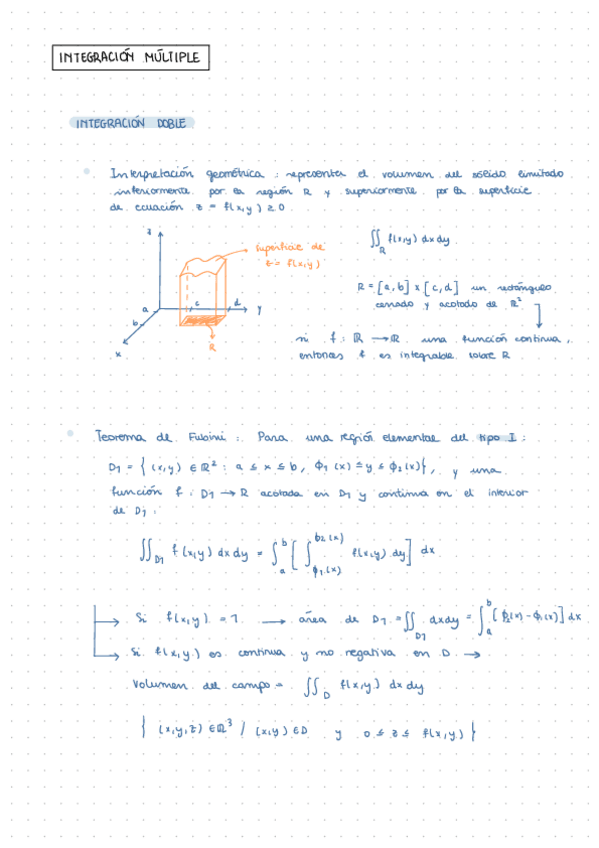 INTEGRACIÓN MÚLTIPLE
INTEGRACIÓN DOBLE
Interpretación geométrica : representa el volumen del sólido limitado
inferiormente por la región R y superiormente por la superficie
de ecuación z = f(x,y) ≥ 0
z
superficie de
z = f(x,y)
a
c
d
y
b
x
R
∬_R f(x,y) dx dy
R = [a,b] x [c,d] un rectángulo
cerrado y acotado de ℝ²
si f: ℝ → ℝ una función continua,
entonces f es integrable sobre R
Teorema de Fubini : Para una región elemental del tipo I :
D1 = { (x,y) ∈ ℝ² : a ≤ x ≤ b, ϕ1(x) ≤ y ≤ ϕ2(x)}, y una
función f: D1 → R acotada en D1 y continua en el interior
de D1 :
∬_D1 f(x,y) dx dy = ∫_a^b [ ∫_ϕ1(x)^ϕ2(x) f(x,y) dy] dx
→ Si f(x,y) = 1 → área de D1 = ∬_D1 dxdy = ∫_a^b [ϕ2(x) - ϕ1(x)] dx
→ Si f(x,y) es continua y no negativa en D →
Volumen del campo = ∬_D f(x,y) dx dy
{ (x,y,z) ∈ ℝ³ / (x,y) ∈ D y 0 ≤ z ≤ f(x,y) }